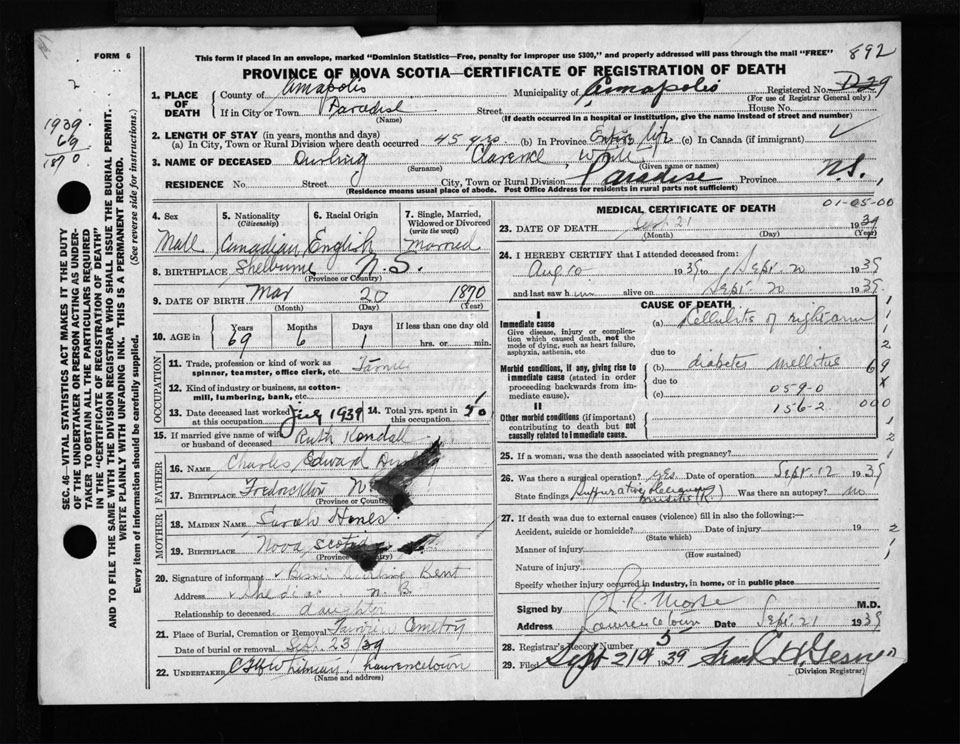 FORM 6
This form if placed in an envelope, marked "Dominion Statistics—Free, penalty for improper use $300," and properly addressed will pass through the mail "FREE"
892
PROVINCE OF NOVA SCOTIA—CERTIFICATE OF REGISTRATION OF DEATH
2
1939.
69
1870
SEC. 46—VITAL STATISTICS ACT MAKES IT THE DUTY
OF THE UNDERTAKER OR PERSON ACTING AS UNDER-
TAKER TO OBTAIN ALL THE PARTICULARS REQUIRED
IN THE "CERTIFICATE OF REGISTRATION OF DEATH"
AND TO FILE THE SAME WITH THE DIVISION REGISTRAR WHO SHALL ISSUE THE BURIAL PERMIT.
WRITE PLAINLY WITH UNFADING INK. THIS IS A PERMANENT RECORD.
Every item of information should be carefully supplied. (See reverse side for instructions.)
1. PLACE OF DEATH County of Annapolis Municipality of Annapolis Registered No. D-29
(For use of Registrar General only)
If in City or Town Paradise Street House No.
(Name) (If death occurred in a hospital or institution, give the name instead of street and number)
2. LENGTH OF STAY (in years, months and days)
(a) In City, Town or Rural Division where death occurred 45 yrs (b) In Province Entire life (c) In Canada (if immigrant)
3. NAME OF DECEASED Durling Clarence
(Surname) (Given name or names)
RESIDENCE No. Street City, Town or Rural Division Paradise Province N.S.
(Residence means usual place of abode. Post Office Address for residents in rural parts not sufficient)
4. Sex 5. Nationality (Citizenship) 6. Racial Origin 7. Single, Married, Widowed or Divorced (write the word)
Male Canadian English Married
8. BIRTHPLACE Shelburne N.S.
(Province or Country)
9. DATE OF BIRTH Mar 20 1870
(Month) (Day) (Year)
10. AGE in Years Months Days If less than one day old
69 6 1 hrs. or min.
OCCUPATION
11. Trade, profession or kind of work as spinner, teamster, office clerk, etc. Farmer
12. Kind of industry or business, as cotton-mill, lumbering, bank, etc.
13. Date deceased last worked at this occupation July 1939 14. Total yrs. spent in this occupation 50
15. If married give name of wife or husband of deceased Ruth Kendall
FATHER
16. NAME Charles Edward Durling
17. BIRTHPLACE Fredrickton N
(Province or
MOTHER
18. MAIDEN NAME Sarah
19. BIRTHPLACE Nova Scotia
(Province or Country)
20. Signature of informant Kent
Address Shediac N. B.
Relationship to deceased daughter
21. Place of Burial, Cremation or Removal Cemetery
Date of burial or removal Sept. 23 / 39
22. UNDERTAKER Lawrencetown
(Name and address)
MEDICAL CERTIFICATE OF DEATH
01-05-00
23. DATE OF DEATH Sept. 21 1939
(Month) (Day) (Year)
24. I HEREBY CERTIFY that I attended deceased from:
Aug 10 1939 to Sept. 20 1939
and last saw him alive on Sept. 20 1939.
CAUSE OF DEATH
I
Immediate cause
Give disease, injury or complication which caused death, not the mode of dying, such as heart failure, asphyxia, asthenia, etc
(a) Cellulitis of right arm
due to
Morbid conditions, if any, giving rise to immediate cause (stated in order proceeding backwards from immediate cause).
(b) diabetes mellitus
due to
(c) 059-0
156-2
II
Other morbid conditions (if important) contributing to death but not causally related to immediate cause.
1
1
1
2
69
x
000
1
2
25. If a woman, was the death associated with pregnancy?
26. Was there a surgical operation? yes. Date of operation Sept. 12 1939
State findings Suppurative Bursitis (R) Was there an autopsy? no
27. If death was due to external causes (violence) fill in also the following:—
Accident, suicide or homicide? Date of injury 19
(State which)
Manner of injury
(How sustained)
Nature of injury
Specify whether injury occurred in industry, in home, or in public place
2
1
1
Signed by L.R. Morse M.D.
Address Lawrencetown Date Sept. 21 1939
28. Registrar's Record Number 5
29. Filed Sept 21 1939
(Division Registrar)